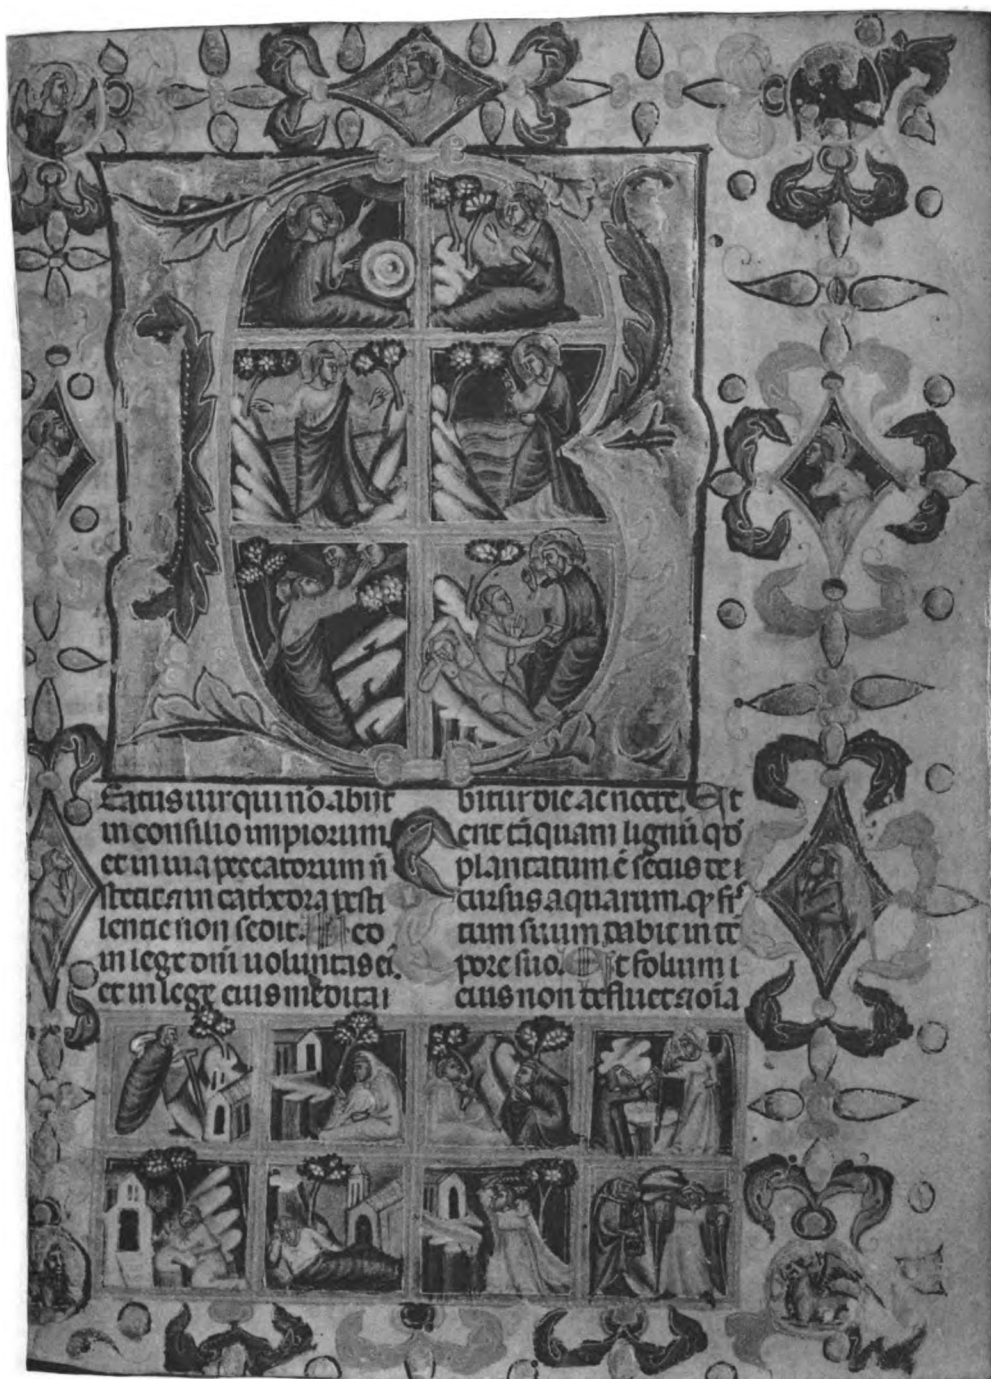 Eatus uir qui nō abijt
in consilio impiorum.
et in uia peccatorum n̄
stetit. ⁊ in cathedra pesti
lentie non sedit. Sed
in lege dn̄i uoluntas ei.
et in lege eius meditai
bitur die ac nocte. Et
erit tāquam lignū qd̓
plantatum ē secus de i
cursus aquarum. qͥ
tum suum dabit in tē
pore suo. Et folium i
eius non defluet ⁊ oīa